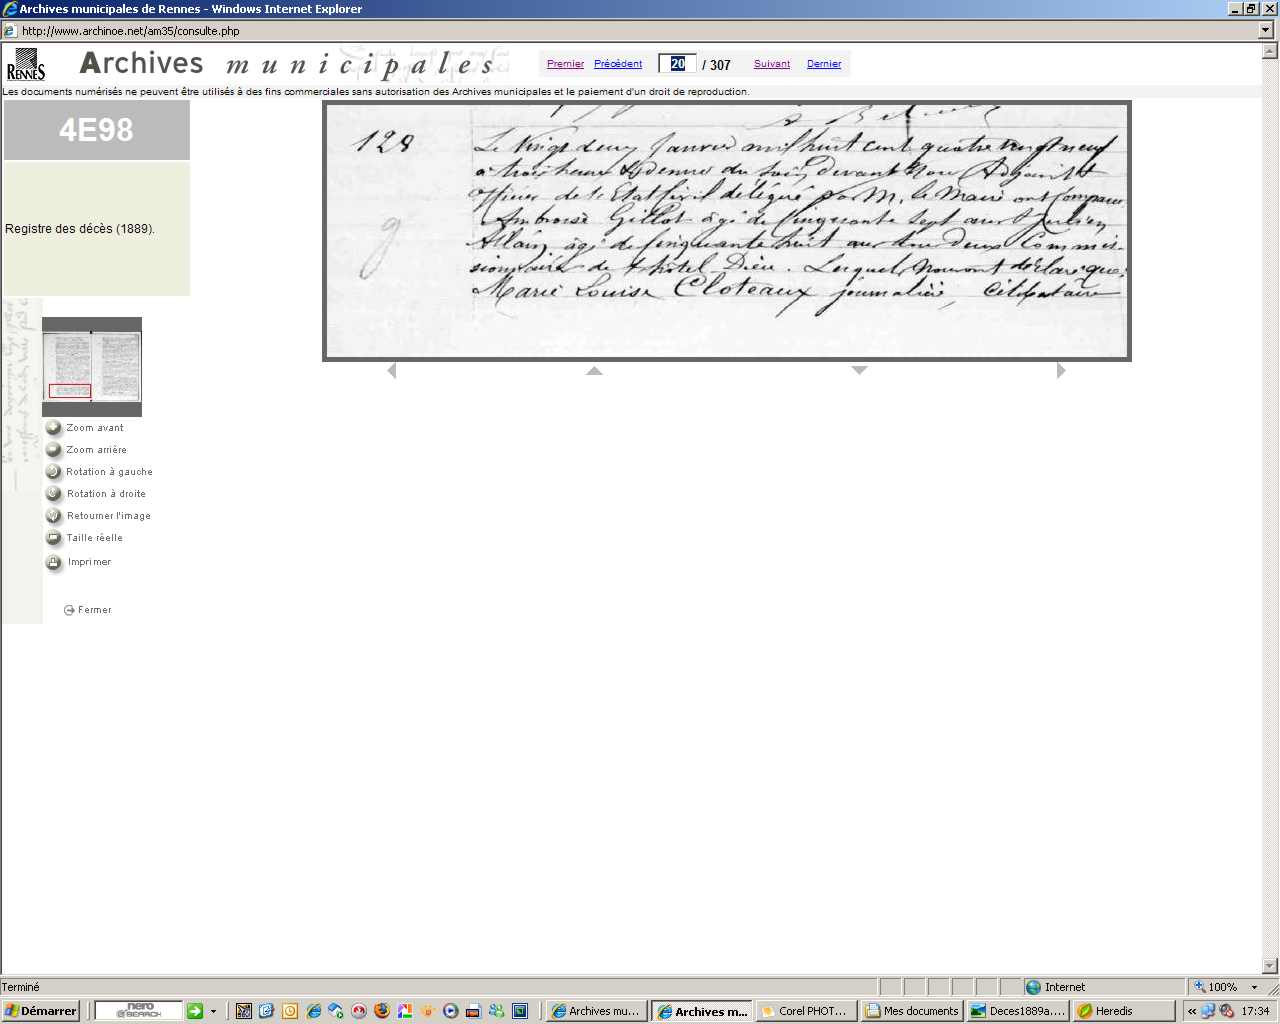 Archives municipales de Rennes - Windows Internet Explorer
http://www.archinoe.net/am35/consulte.php
RENNES
Archives municipales
Premier Précédent 20 / 307 Suivant Dernier
Les documents numérisés ne peuvent être utilisés à des fins commerciales sans autorisation des Archives municipales et le paiement d'un droit de reproduction.
4E98
Registre des décès (1889).
128
Le vingt deux Janvier mil huit cent quatre vingt neuf
à trois heures & demie du soir, devant Nous Adjoint &
officier de l'Etat Civil délégué par M. le Maire ont comparu
Ambroise Gillot âgé de Cinquante sept ans & Julien
Allain âgé de Cinquante huit ans tous deux Commis-
sionnaires de l'hôtel-Dieu. Lesquels nous ont déclaré que
Marie Louise Cloteaux journalière, Célibataire
g
Zoom avant
Zoom arrière
Rotation à gauche
Rotation à droite
Retourner l'image
Taille réelle
Imprimer
Fermer
Terminé
Internet
100%
Démarrer
nero
SEARCH
Archives mu...
Archives m...
Corel PHOT...
Mes documents
Deces1889a....
Heredis
« 17:34